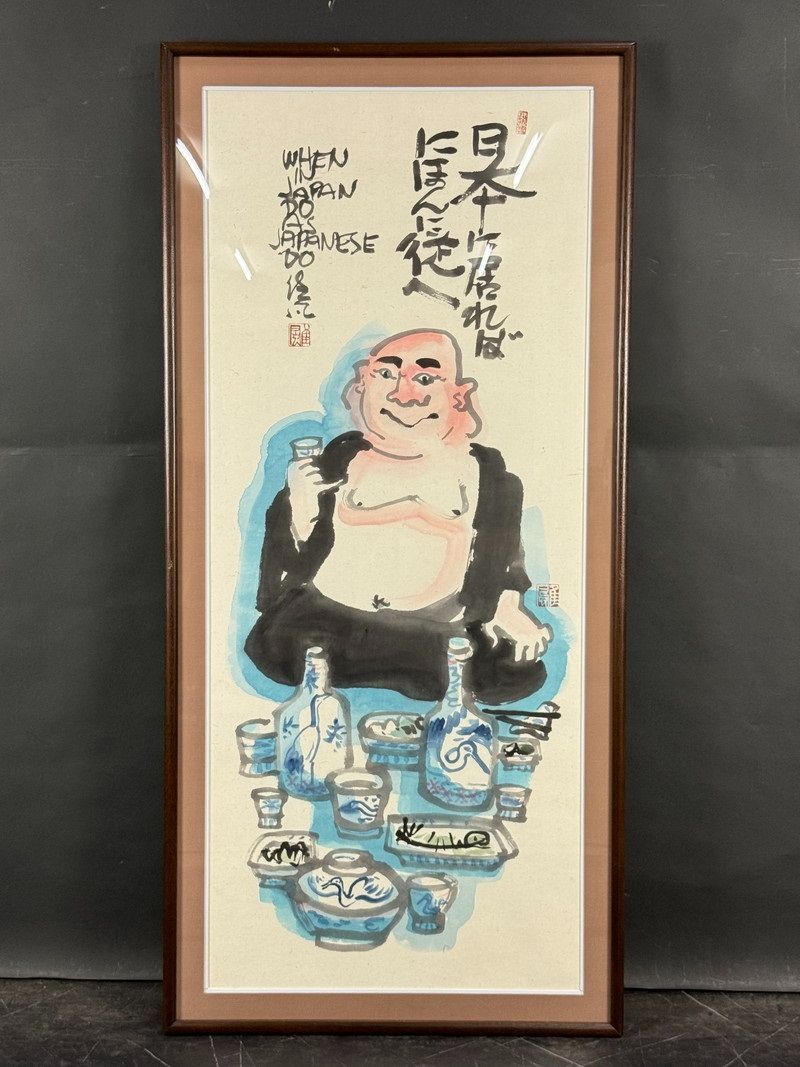 日本に居れば
にほんに従へ
WHEN
IN
JAPAN
DO
AS
JAPANESE
DO